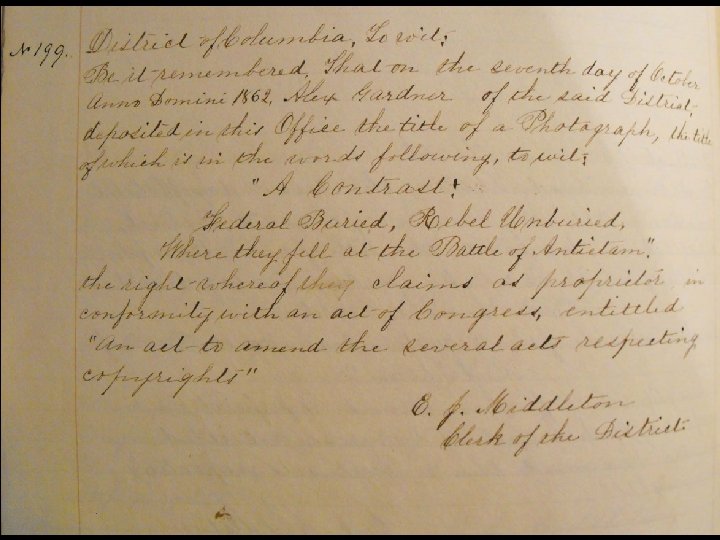 No 199. District of Columbia, To wit:
Be it remembered, That on the seventh day of October
Anno Domini 1862, Alex Gardner of the said District,
deposited in this Office the title of a Photograph, the title
of which is in the words following, to wit:
"A Contrast!
Federal Buried, Rebel Unburied,
Where they fell at the Battle of Antietam".
the right whereof they claims as proprietor in
conformity with an act of Congress, entitled
"An act to amend the several acts respecting
copyrights"
E. J. Middleton
Clerk of the District.